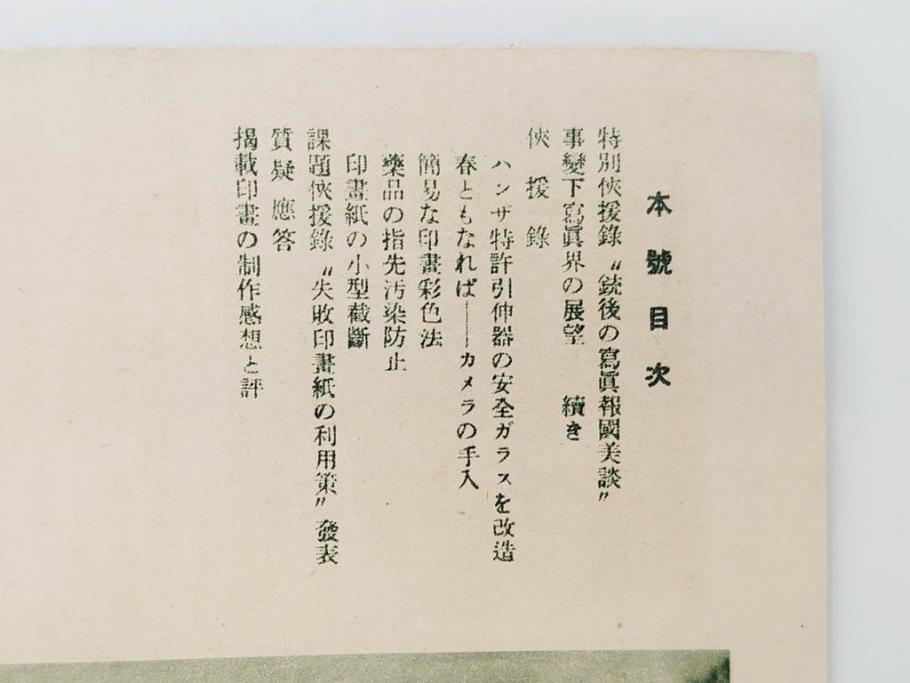 本號目次
特別俠援錄〝銃後の寫眞報國美談〟
事變下寫眞界の展望　續き
俠援錄
ハンザ特許引伸器の安全ガラスを改造
春ともなれば――カメラの手入
簡易な印畫彩色法
藥品の指先汚染防止
印畫紙の小型截斷
課題俠援錄〝失敗印畫紙の利用策〟發表
質疑應答
揭載印畫の制作感想と評